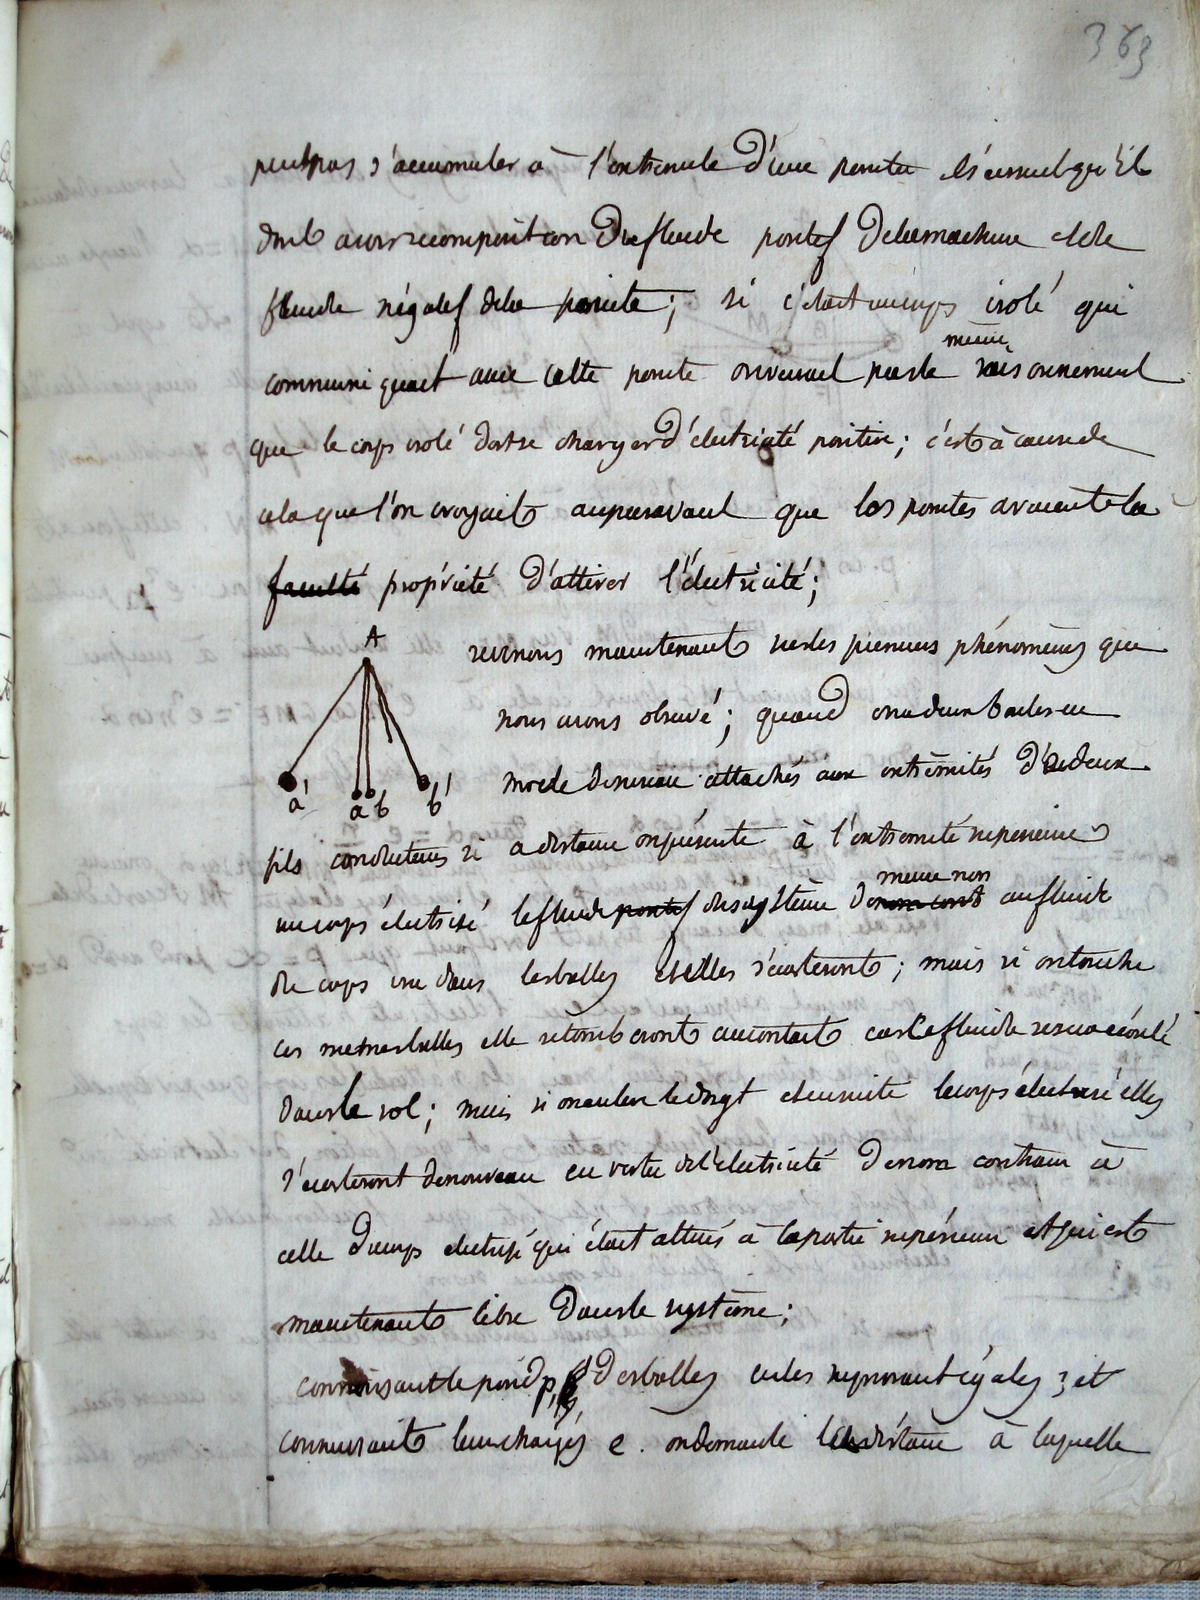 363
peut pas s'accumuler à l'extremite d'une pointe il s'ensuit qu'il
doit avoir recomposition du fluide positif de la machine et de
fluide négatif de la pointe ; si c'était un corps isolé qui
communiquait avec cette pointe on verrait par le même raisonnement
que le corps isolé doit se charger d'électricité positive ; c'est à cause de
cela que l'on croyait auparavant que les pointes avaient la
faculté propriété d'attirer l'électricité ;
A
revenons maintenant sur les premiers phénomènes que
nous avons observé ; quand on a deux balles en
moele de sureau attachés aux extrêmités de deux
a' a b b'
fils conducteurs si a distance on présente à l'extremité superieure
un corps électrisé le fluide positif du système de nom cont même nom au fluide
de corps ira dans les balles et elles s'écarteront ; mais si on touche
ces memes balles elle retomberont au contact car le fluide sera écoulé
dans le sol ; mais si on enleve le doigt et ensuite le corps électrisé elles
s'écarteront de nouveau en vertu de l'électricité de nom contraire à
celle du corps electrisé qui était attirés à la partie supérieure et qui est
maintenant libre dans le système ;
connoissant le poid p, des balles en les supposant égales , et
connaissant leur charges e . on demande la distance à laquelle